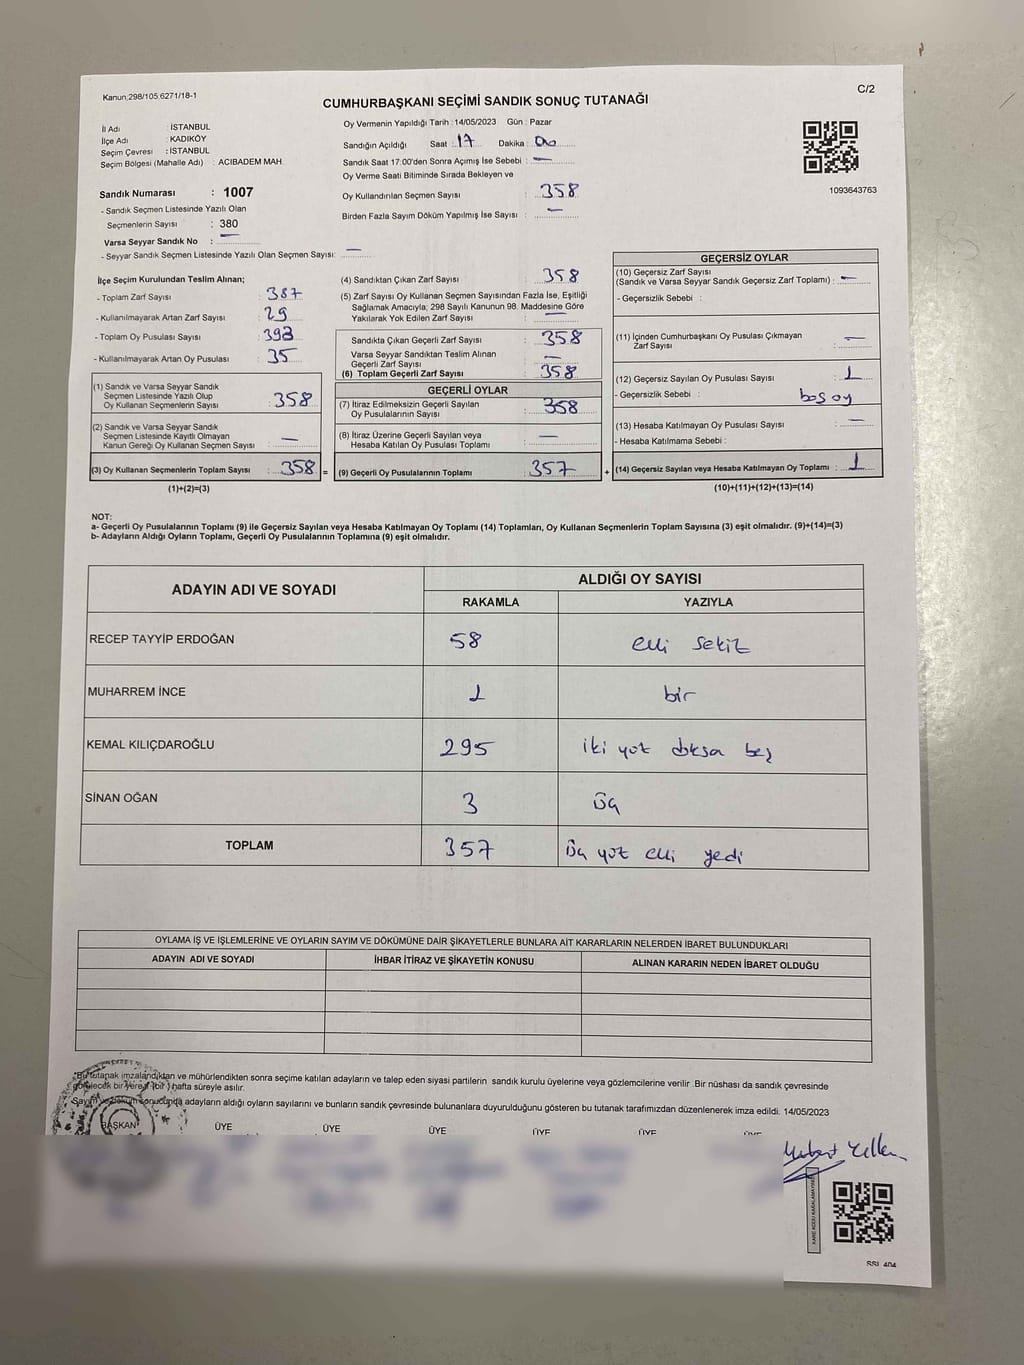 Kanun:298/105,6271/18-1
C/2
CUMHURBAŞKANI SEÇİMİ SANDIK SONUÇ TUTANAĞI
İl Adı : İSTANBUL
İlçe Adı : KADIKÖY
Seçim Çevresi : İSTANBUL
Seçim Bölgesi (Mahalle Adı) : ACIBADEM MAH.
Sandık Numarası : 1007
- Sandık Seçmen Listesinde Yazılı Olan
Seçmenlerin Sayısı : 380
Varsa Seyyar Sandık No : —
- Seyyar Sandık Seçmen Listesinde Yazılı Olan Seçmen Sayısı: —
Oy Vermenin Yapıldığı Tarih : 14/05/2023 Gün : Pazar
Sandığın Açıldığı Saat : 17 Dakika : 00
Sandık Saat 17:00'den Sonra Açımış İse Sebebi : —
Oy Verme Saati Bitiminde Sırada Bekleyen ve
Oy Kullandırılan Seçmen Sayısı : 358
Birden Fazla Sayım Döküm Yapılmış İse Sayısı : —
1093643763
İlçe Seçim Kurulundan Teslim Alınan;
- Toplam Zarf Sayısı : 387
- Kullanılmayarak Artan Zarf Sayısı : 29
- Toplam Oy Pusulası Sayısı : 393
- Kullanılmayarak Artan Oy Pusulası : 35
(1) Sandık ve Varsa Seyyar Sandık
Seçmen Listesinde Yazılı Olup
Oy Kullanan Seçmenlerin Sayısı : 358
(2) Sandık ve Varsa Seyyar Sandık
Seçmen Listesinde Kayıtlı Olmayan
Kanun Gereği Oy Kullanan Seçmen Sayısı : —
(3) Oy Kullanan Seçmenlerin Toplam Sayısı : 358 =
(1)+(2)=(3)
(4) Sandıktan Çıkan Zarf Sayısı : 358
(5) Zarf Sayısı Oy Kullanan Seçmen Sayısından Fazla İse, Eşitliği
Sağlamak Amacıyla; 298 Sayılı Kanunun 98. Maddesine Göre
Yakılarak Yok Edilen Zarf Sayısı : —
Sandıkta Çıkan Geçerli Zarf Sayısı : 358
Varsa Seyyar Sandıktan Teslim Alınan
Geçerli Zarf Sayısı : —
(6) Toplam Geçerli Zarf Sayısı : 358
GEÇERLİ OYLAR
(7) İtiraz Edilmeksizin Geçerli Sayılan
Oy Pusulalarının Sayısı : 358
(8) İtiraz Üzerine Geçerli Sayılan veya
Hesaba Katılan Oy Pusulası Toplamı : —
(9) Geçerli Oy Pusulalarının Toplamı : 357 +
GEÇERSİZ OYLAR
(10) Geçersiz Zarf Sayısı
(Sandık ve Varsa Seyyar Sandık Geçersiz Zarf Toplamı) : —
- Geçersizlik Sebebi :
(11) İçinden Cumhurbaşkanı Oy Pusulası Çıkmayan
Zarf Sayısı : —
(12) Geçersiz Sayılan Oy Pusulası Sayısı : 1
- Geçersizlik Sebebi : boş oy
(13) Hesaba Katılmayan Oy Pusulası Sayısı : —
- Hesaba Katılmama Sebebi :
(14) Geçersiz Sayılan veya Hesaba Katılmayan Oy Toplamı : 1
(10)+(11)+(12)+(13)=(14)
NOT:
a- Geçerli Oy Pusulalarının Toplamı (9) ile Geçersiz Sayılan veya Hesaba Katılmayan Oy Toplamı (14) Toplamları, Oy Kullanan Seçmenlerin Toplam Sayısına (3) eşit olmalıdır. (9)+(14)=(3)
b- Adayların Aldığı Oyların Toplamı, Geçerli Oy Pusulalarının Toplamına (9) eşit olmalıdır.
ADAYIN ADI VE SOYADI
ALDIĞI OY SAYISI
RAKAMLA YAZIYLA
RECEP TAYYİP ERDOĞAN 58 elli sekiz
MUHARREM İNCE 1 bir
KEMAL KILIÇDAROĞLU 295 iki yüz doksan beş
SİNAN OĞAN 3 üç
TOPLAM 357 üç yüz elli yedi
OYLAMA İŞ VE İŞLEMLERİNE VE OYLARIN SAYIM VE DÖKÜMÜNE DAİR ŞİKAYETLERLE BUNLARA AİT KARARLARIN NELERDEN İBARET BULUNDUKLARI
ADAYIN ADI VE SOYADI İHBAR İTİRAZ VE ŞİKAYETİN KONUSU ALINAN KARARIN NEDEN İBARET OLDUĞU
Bu tutanak imzalandıktan ve mühürlendikten sonra seçime katılan adayların ve talep eden siyasi partilerin sandık kurulu üyelerine veya gözlemcilerine verilir. Bir nüshası da sandık çevresinde
görülecek bir yere 1 (bir) hafta süreyle asılır.
Sayım ve döküm sonucunda adayların aldığı oyların sayılarını ve bunların sandık çevresinde bulunanlara duyurulduğunu gösteren bu tutanak tarafımızdan düzenlenerek imza edildi. 14/05/2023
BAŞKAN ÜYE ÜYE ÜYE ÜYE ÜYE ÜYE